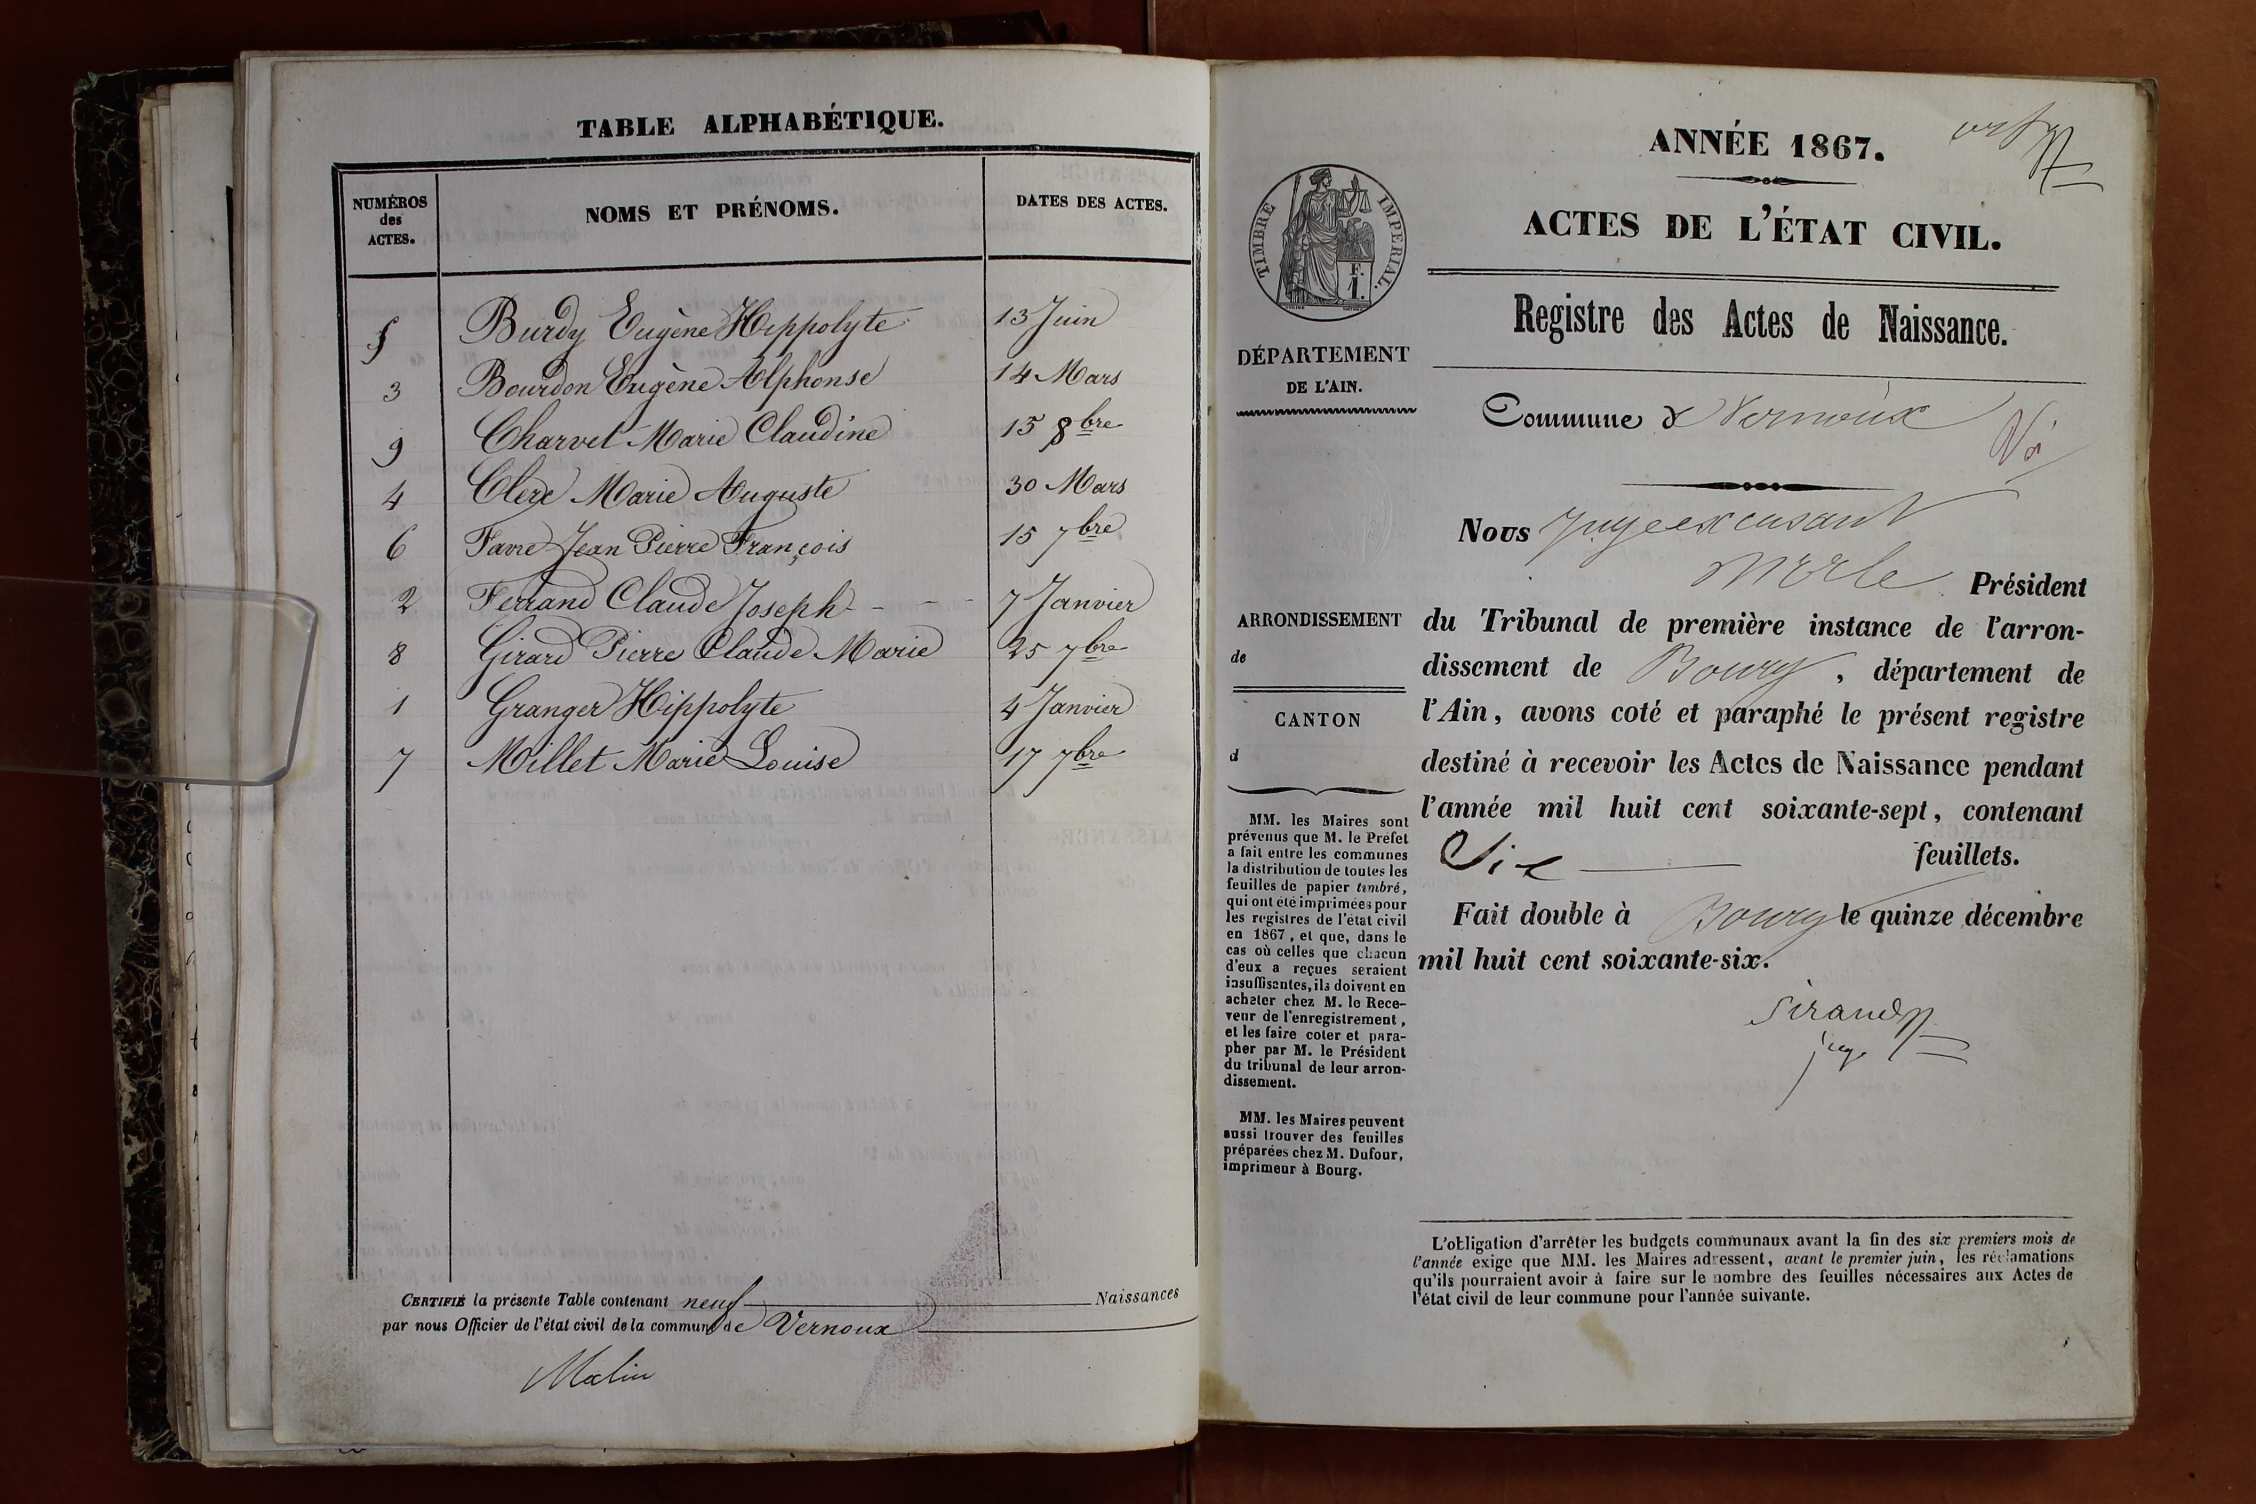 TABLE ALPHABÉTIQUE.
NUMÉROS
des
ACTES.
NOMS ET PRÉNOMS.
DATES DES ACTES.
5 Burdy Eugène Hippolyte 13 Juin
3 Bourdon Eugène Alphonse 14 Mars
9 Charvet Marie Claudine 15 8bre
4 Clerc Marie Auguste 30 Mars
6 Favre Jean Pierre François 15 7bre
2 Ferrand Claude Joseph - - - 7 Janvier
8 Girard Pierre Claude Marie 25 7bre
1 Granger Hippolyte 4 Janvier
7 Millet Marie Louise 17 7bre
CERTIFIÉ la présente Table contenant neuf Naissances
par nous Officier de l'état civil de la commune de Vernoux
ANNÉE 1867.
ACTES DE L'ÉTAT CIVIL.
TIMBRE IMPERIAL.
F.
1.
Registre des Actes de Naissance.
DÉPARTEMENT
DE L'AIN.
Commune de Vernoux
Nous
Président
ARRONDISSEMENT
de
CANTON
d
du Tribunal de première instance de l'arron-
dissement de Bourg, département de
l'Ain, avons coté et paraphé le présent registre
destiné à recevoir les Actes de Naissance pendant
l'année mil huit cent soixante-sept, contenant
Six feuillets.
Fait double à Bourg le quinze décembre
mil huit cent soixante-six.
Sirand
juge
MM. les Maires sont
prévenus que M. le Préfet
a fait entre les communes
la distribution de toutes les
feuilles de papier timbré,
qui ont été imprimées pour
les registres de l'état civil
en 1867, et que, dans le
cas où celles que chacun
d'eux a reçues seraient
insuffisantes, ils doivent en
acheter chez M. le Rece-
veur de l'enregistrement,
et les faire coter et para-
pher par M. le Président
du tribunal de leur arron-
dissement.
MM. les Maires peuvent
aussi trouver des feuilles
préparées chez M. Dufour,
imprimeur à Bourg.
L'obligation d'arrêter les budgets communaux avant la fin des six premiers mois de
l'année exige que MM. les Maires adressent, avant le premier juin, les réclamations
qu'ils pourraient avoir à faire sur le nombre des feuilles nécessaires aux Actes de
l'état civil de leur commune pour l'année suivante.